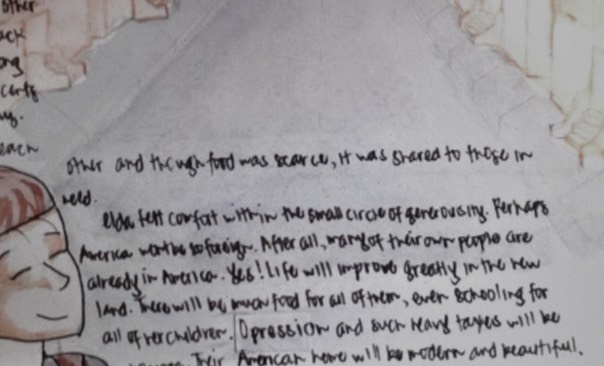 other
ack
ong
certs
each
other and though food was scarce, it was shared to those in
need.
Elda felt comfort within the small circle of generousity. Perhaps
America won't be so foreign. After all, many of their own people are
already in America. Yes! Life will improve greatly in the new
land. There will be much food for all of them, even schooling for
all of her children. Opression and such heavy taxes will be
Their American home will be modern and beautiful.